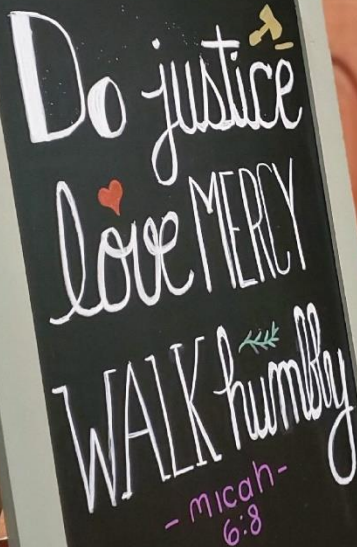 Do justice
love MERCY
WALK humbly
- Micah -
6:8